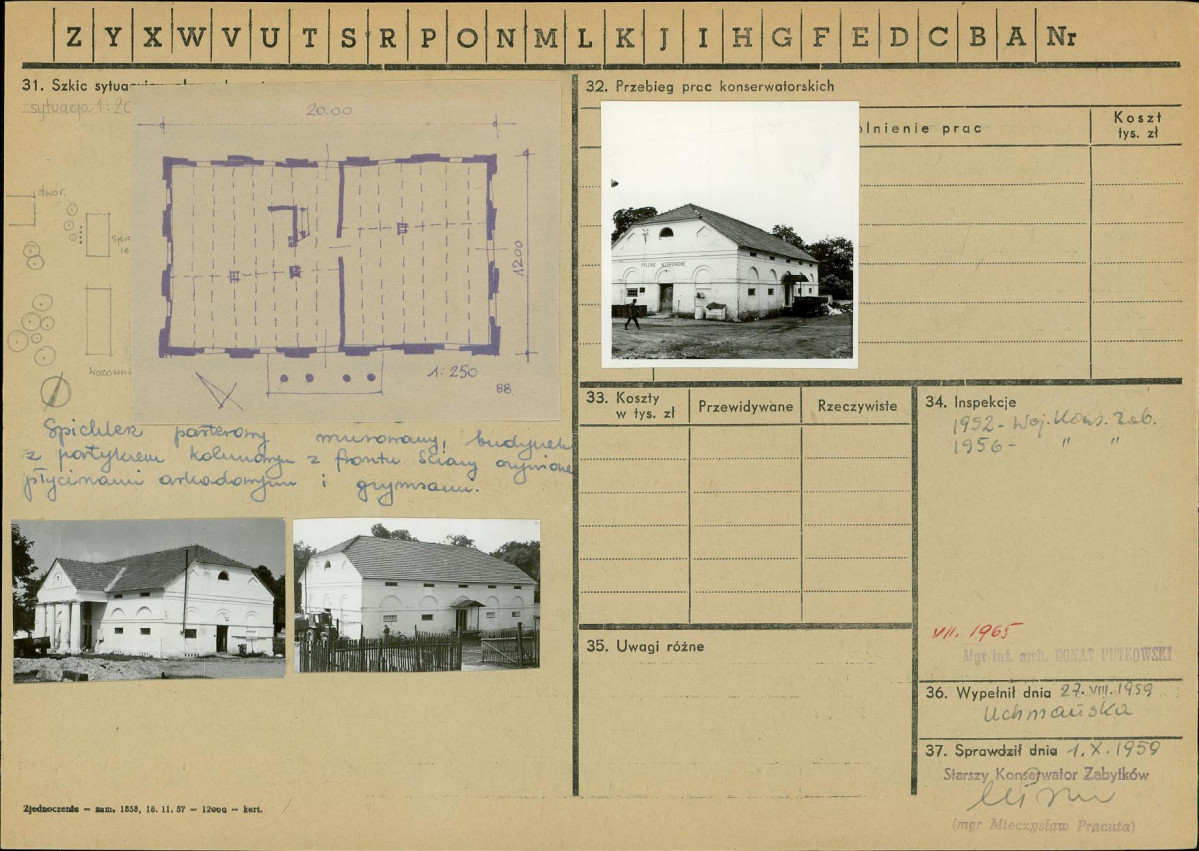 Z Y X W V U T S R P O N M L K J I H G F E D C B A Nr
31. Szkic
sytuacja 1:20
dwór
20.00
12.00
1:250
88.
Spichlerz parterowy murowany, budynek
z portykiem kolumnowym z frontu. Ściany
płycinami arkadowymi i gzymsami.
Zjednoczenie — zam. 1858, 16. 11. 57 — 12000 — kart.
32. Przebieg prac konserwatorskich
olnienie prac
Koszt
tys. zł
33. Koszty
w tys. zł
Przewidywane
Rzeczywiste
34. Inspekcje
1952 - Woj. Kons. Zab.
1956 - " "
VII. 1965
Mgr inż. arch. DONAT PUTKOWSKI
35. Uwagi różne
36. Wypełnił dnia 27. VIII. 1959
Uchmańska
37. Sprawdził dnia 1. X. 1959
Starszy Konserwator Zabytków
(mgr Mieczysław Pracuta)